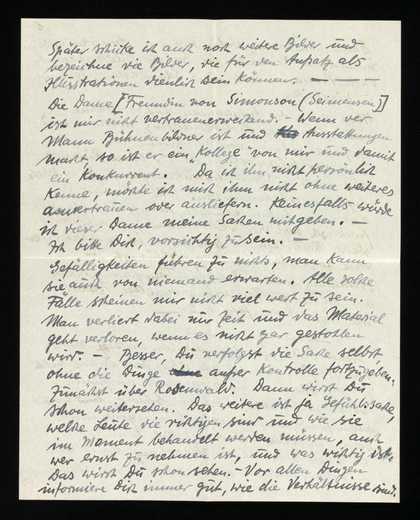 Später schicke ich auch noch weitere Bilder und
bezeichne die Bilder, die für den Aufsatz als
Illustrationen dienlich sein können. — — —
Die Dame [Freundin von Simonson (Seimensen)]
ist mir nicht vertrauenerweckend. – Wenn der
Mann Bühnenbildner ist und Ausstattungen
macht so ist er ein „Kollege" von mir und damit
ein Konkurrent. Da ich ihn nicht persönlich
kenne, möchte ich mich ihm nicht ohne weiteres
anvertrauen oder ausliefern. Keinesfalls würde
ich dieser Dame meine Sachen mitgeben. –
Ich bitte Dich, vorsichtig zu sein. –
Gefälligkeiten führen zu nichts, man kann
sie auch von niemand erwarten. Alle solche
Fälle scheinen mir nicht viel wert zu sein.
Man verliert dabei nur Zeit und das Material
geht verloren, wenn es nicht gar gestohlen
wird. – Besser, Du verfolgst die Sache selbst
ohne die Dinge ausser Kontrolle fortzugeben.
Zunächst über Rosenwald. Dann wirst Du
schon weitersehen. Das weitere ist ja Gefühlssache,
welche Leute die richtigen sind und wie sie
im Moment behandelt werden müssen, auch
wer ernst zu nehmen ist, und was wichtig ist.
Das wirst Du schon sehen. – Vor allen Dingen
informiere Dich immer gut, wie die Verhältnisse sind.